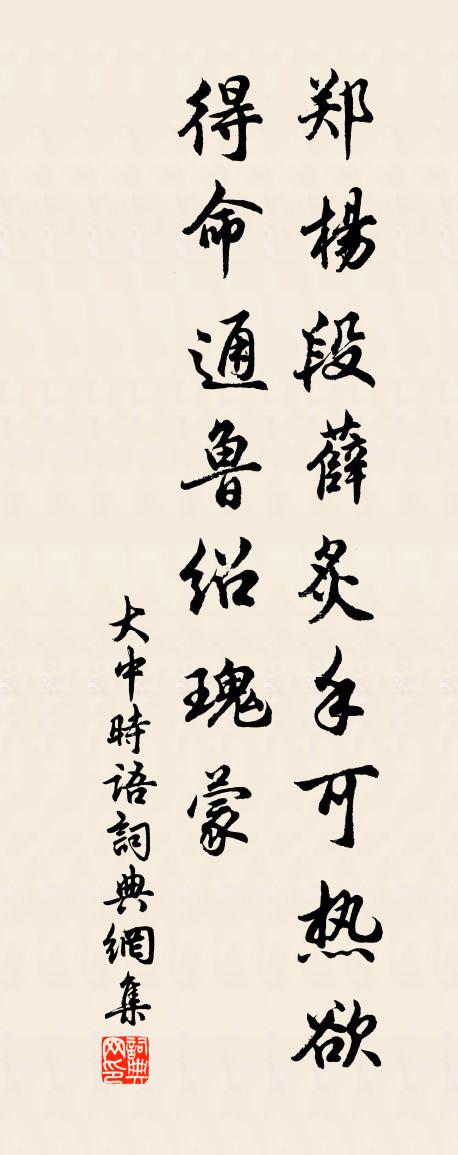 郑楊段薛炙手可热欲
得命通魯绍瑰蒙
大中時语詞典網集
詞典网印